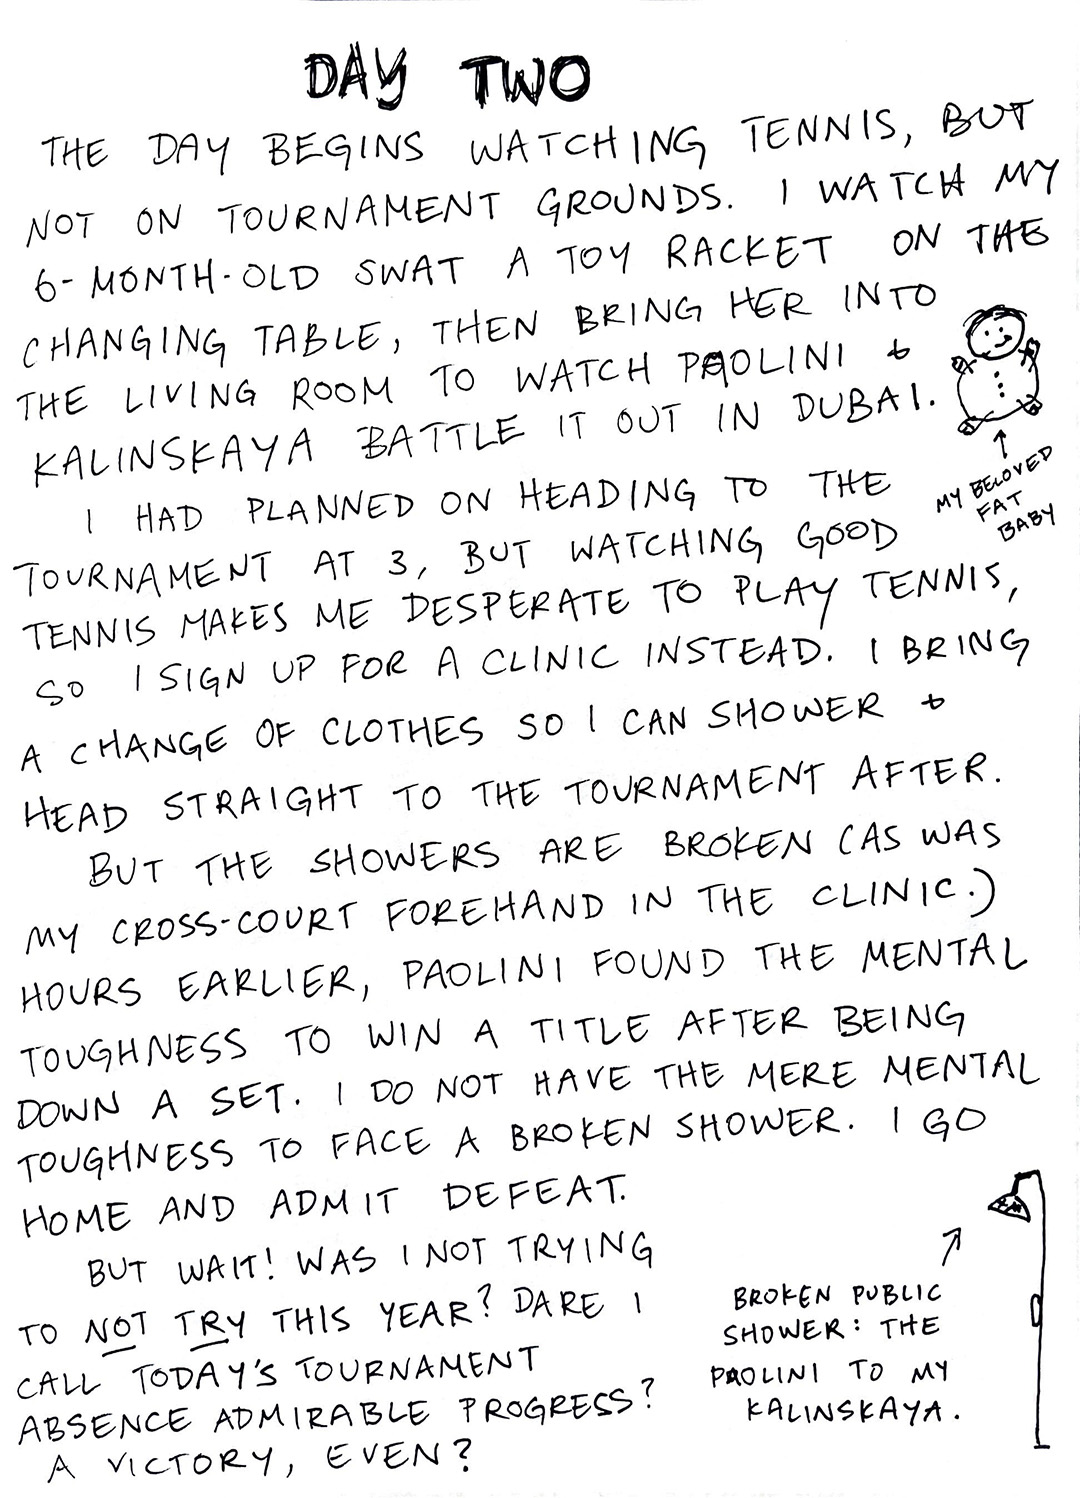 DAY TWO
THE DAY BEGINS WATCHING TENNIS, BUT
NOT ON TOURNAMENT GROUNDS. I WATCH MY
6-MONTH-OLD SWAT A TOY RACKET ON THE
CHANGING TABLE, THEN BRING HER INTO
THE LIVING ROOM TO WATCH PAOLINI &
KALINSKAYA BATTLE IT OUT IN DUBAI.
MY BELOVED
FAT
BABY
I HAD PLANNED ON HEADING TO THE
TOURNAMENT AT 3, BUT WATCHING GOOD
TENNIS MAKES ME DESPERATE TO PLAY TENNIS,
SO I SIGN UP FOR A CLINIC INSTEAD. I BRING
A CHANGE OF CLOTHES SO I CAN SHOWER &
HEAD STRAIGHT TO THE TOURNAMENT AFTER.
BUT THE SHOWERS ARE BROKEN (AS WAS
MY CROSS-COURT FOREHAND IN THE CLINIC.)
HOURS EARLIER, PAOLINI FOUND THE MENTAL
TOUGHNESS TO WIN A TITLE AFTER BEING
DOWN A SET. I DO NOT HAVE THE MERE MENTAL
TOUGHNESS TO FACE A BROKEN SHOWER. I GO
HOME AND ADMIT DEFEAT.
BUT WAIT! WAS I NOT TRYING
TO NOT TRY THIS YEAR? DARE I
CALL TODAY'S TOURNAMENT
ABSENCE ADMIRABLE PROGRESS?
A VICTORY, EVEN?
BROKEN PUBLIC
SHOWER: THE
PAOLINI TO MY
KALINSKAYA.